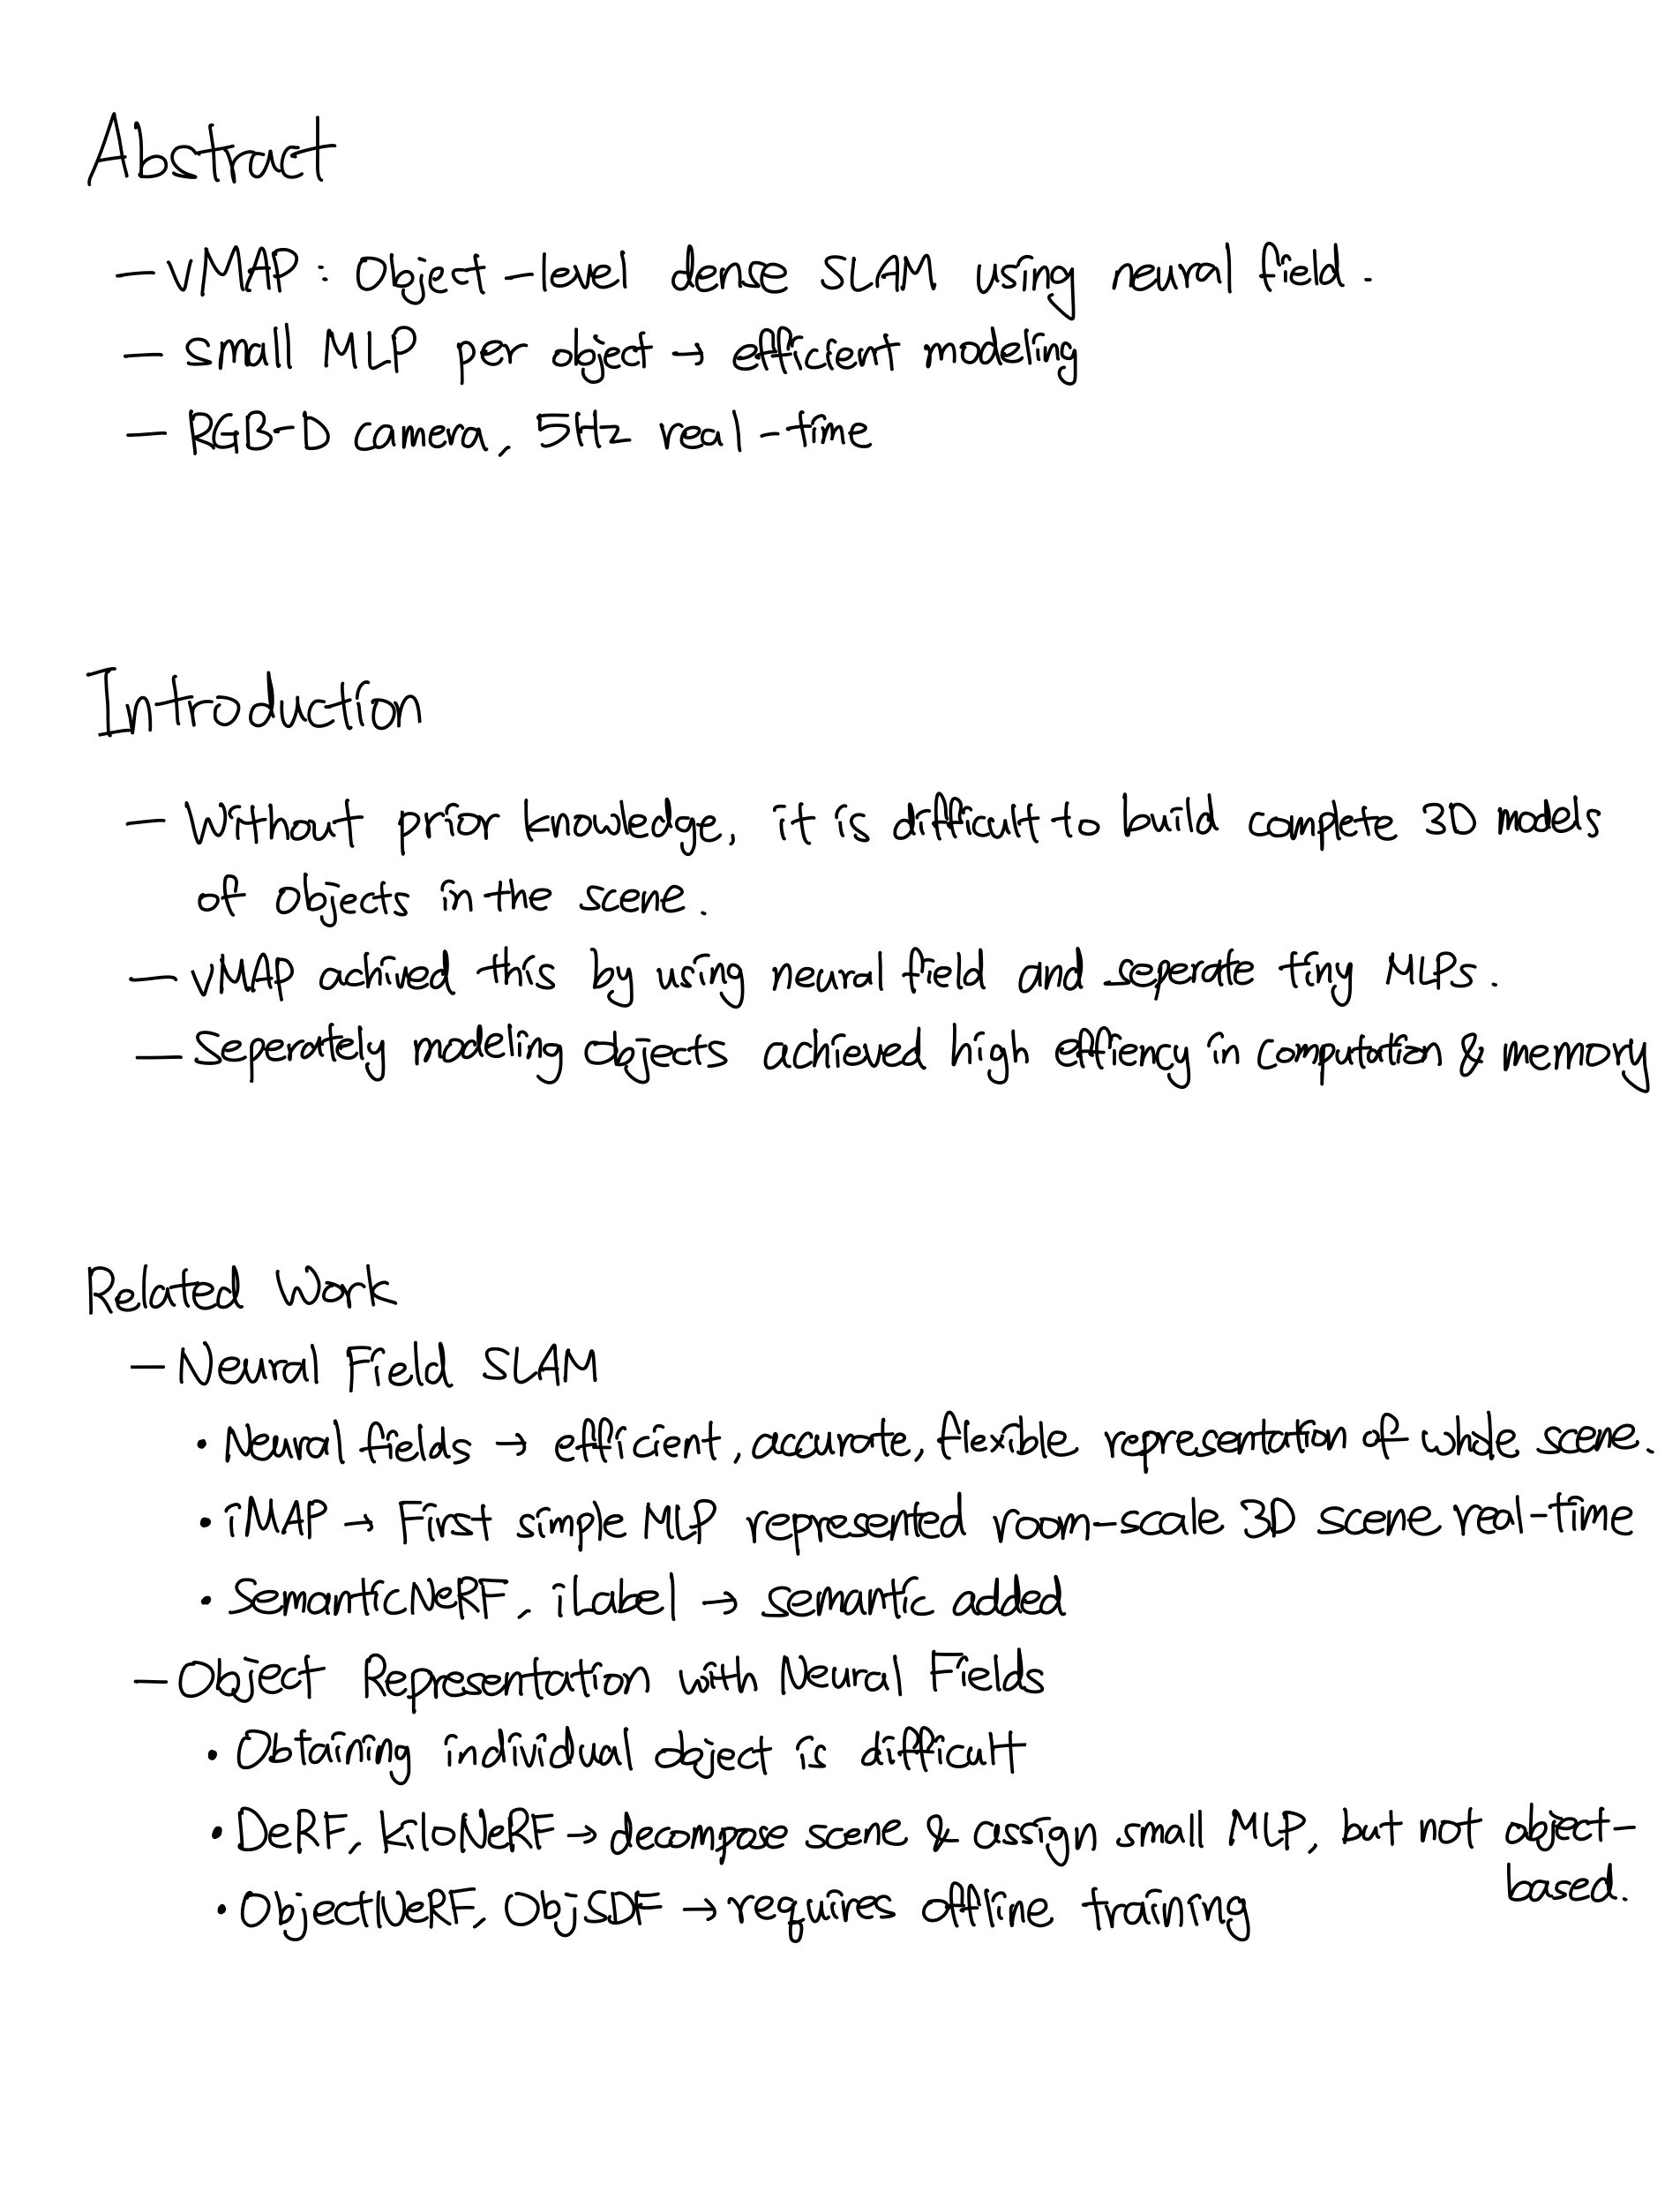 Abstract
- vMAP : Object-level dense SLAM using neural field.
- small MLP per object → efficient modeling
- RGB-D camera, 5Hz real-time
Introduction
- Without prior knowledge, it is difficult to build complete 3D models
of objects in the scene.
- vMAP achived this by using neural field and seperate tiny MLPs.
- Seperately modeling objects achieved high effiency in computation & memory
Related Work
- Neural Field SLAM
• Neural fields → efficient, accurate, flexible representation of whole scene.
• iMAP → First simple MLP represented room-scale 3D scene real-time
• SemanticNeRF, iLabel → semantic added
- Object Representation with Neural Fields
• Obtaining individual object is difficult
• DeRF, KiloNeRF → decompose scene & assign small MLP, but not object-
based.
• ObjectNeRF, ObjSDF → requires offline training